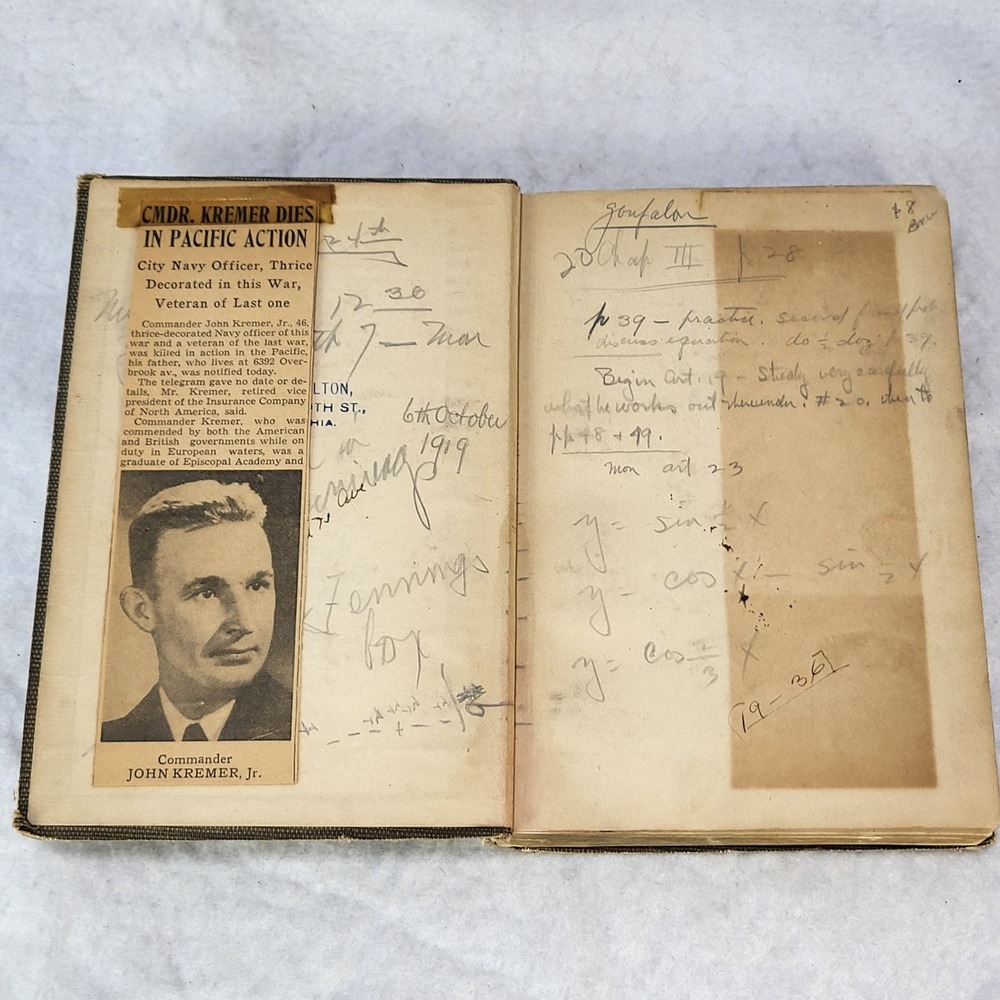 CMDR. KREMER DIES
IN PACIFIC ACTION
City Navy Officer, Thrice
Decorated in this War,
Veteran of Last one
Commander John Kremer, Jr., 46,
thrice-decorated Navy officer of this
war and a veteran of the last war,
was killed in action in the Pacific,
his father, who lives at 6392 Over-
brook av., was notified today.
The telegram gave no date or de-
tails, Mr. Kremer, retired vice
president of the Insurance Company
of North America, said.
Commander Kremer, who was
commended by both the American
and British governments while on
duty in European waters, was a
graduate of Episcopal Academy and
Commander
JOHN KREMER, Jr.
4th
12 30
th 7 - Mon
LTON,
TH ST.,
HIA.
6th October
1919
Ave
Jennings
box
gonfalon
$8
20 Chap III p 28
p 39 - practice. second
discuss equation. do 1/2 doz p 39.
Begin Art. 19 - Study very carefully
what he works out thereunder. #20. then to
pp 48 + 49.
Mon art 23
y = sin 1/2 x
y = cos x - sin 1/2 x
y = cos 2/3 x
19 - 36